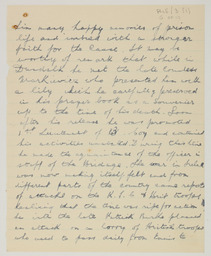 his many happy memories of prison
life and imbued with a stronger
faith for the Cause. It may be
worthy of remark that while in
Dundalk he met the late Countess
Markievicz who presented him with
a lily which he carefully preserved
in his prayer book as a souvenir
up to the time of his death. Soon
after his release he was promoted
1st Lieutenant of B Coy and continued
his activities unabated. During this time
he made the acquaintance of the officers in
staff of the Brigade. The war in Ireland
was now making itself felt and from
different parts of the country came reports
of attacks on the R.I.C. & British troops.
Realising that the time was ripe for action
he with the late Patrick planned
an attack on a lorry of British troops
who used to pass daily from to